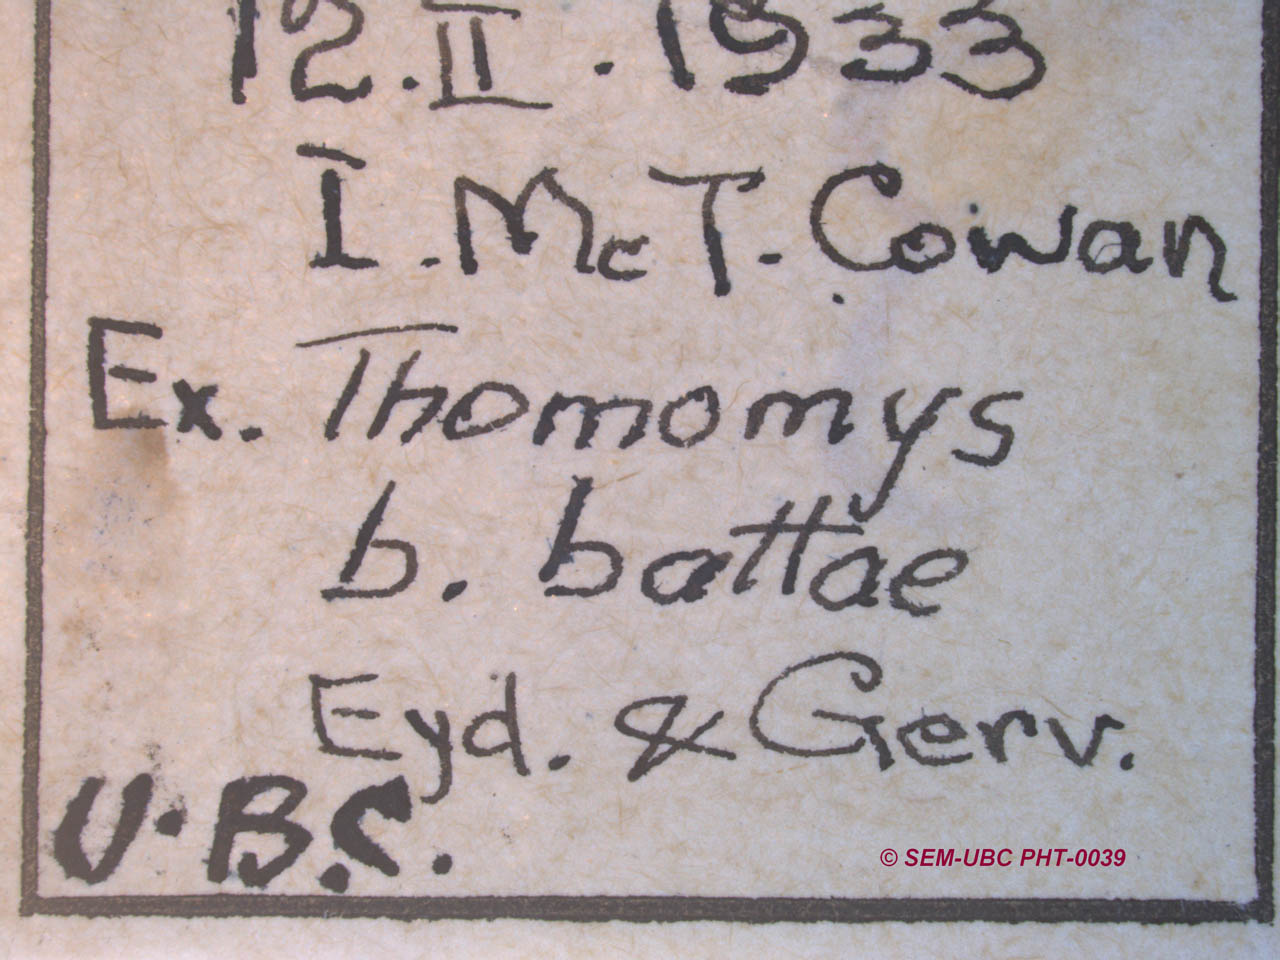 12.II.1933
I. Mc T. Cowan
Ex. Thomomys
b. battae
Eyd. & Gerv.
U.B.C.
© SEM-UBC PHT-0039